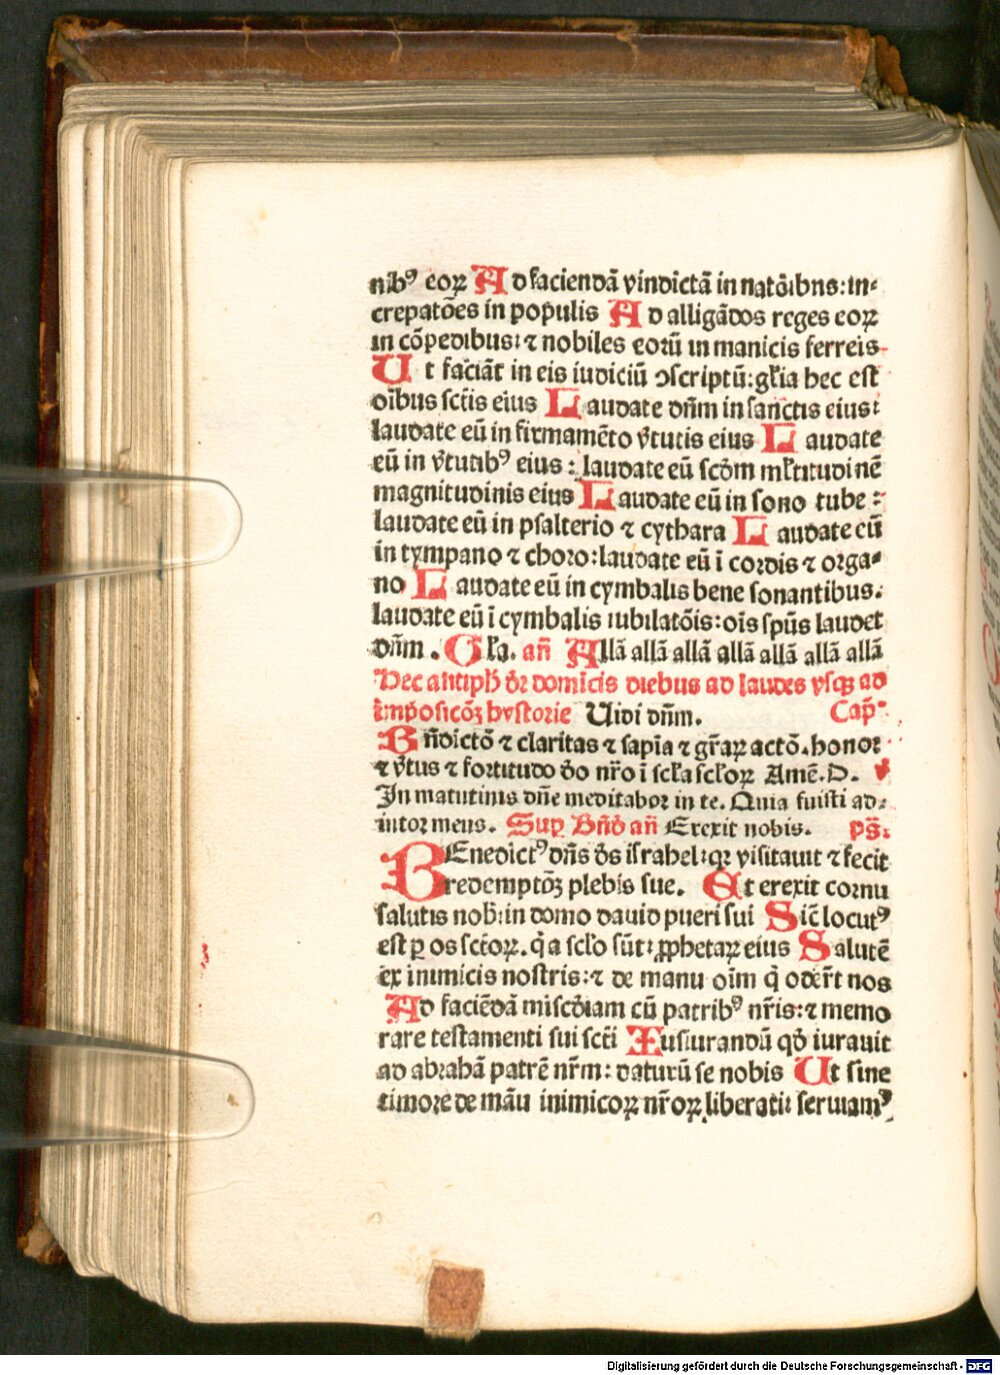 nibꝰ eoꝝ Ad faciendā vindictā in natōibns: in⸗
crepatōes in populis Ad alligādos reges eoꝝ
in cōpedibus: ⁊ nobiles eorū in manicis ferreis.
Ut faciāt in eis iudiciū ↄscriptū: gl̄ia hec est
oībus sctīs eius Laudate dn̄m in sanctis eius:
laudate eū in firmamēto v̄tutis eius Laudate
eū in v̄tutibꝰ eius: laudate eū scd̄m ml̄titudinē
magnitudinis eius Laudate eū in sono tube:
laudate eū in psalterio ⁊ cythara Laudate eū
in tympano ⁊ choro: laudate eū ī cordis ⁊ orga⸗
no Laudate eū in cymbalis bene sonantibus.
laudate eū ī cymbalis iubilatōis: oīs spūs laudet
dn̄m. Gl̄a. an̄ Allā allā allā allā allā allā allā
Hec antiph̄ dr̄ domīcis diebus ad laudes vsqꝫ ad
īmposicōꝫ hystorie Uidi dn̄m. Cap̄
Bn̄dictō ⁊ claritas ⁊ sapīa ⁊ gr̄aꝝ actō. honor
⁊ v̄tus ⁊ fortitudo do nr̄o ī scl̄a scl̄oꝝ Amē. D. v
In matutinis dn̄e meditabor in te. Quia fuisti ad⸗
iutor meus. Sup Bn̄d an̄ Erexit nobis. ps̄.
BEnedictꝰ dn̄s ds̄ israhel: qꝛ visitauit ⁊ fecit
redemptōꝫ plebis sue. Et erexit cornu
salutis nob̄: in domo dauid pueri sui Sic̄ locutꝰ
est ꝑ os sctōꝝ. q̄ a scl̄o sūt: ꝓphetaꝝ eius Salutē
ex inimicis nostris: ⁊ de manu oīm q̄ oder̄t nos
Ad faciēdā misc̄diam cū patribꝰ nr̄is: ⁊ memo
rare testamenti sui sctī Iusiurandū qd̄ iurauit
ad abrahā patrē nr̄m: daturū se nobis Ut sine
timore de māu inimicoꝝ nr̄oꝝ liberati: seruiamꝰ
Digitalisierung gefördert durch die Deutsche Forschungsgemeinschaft - DFG